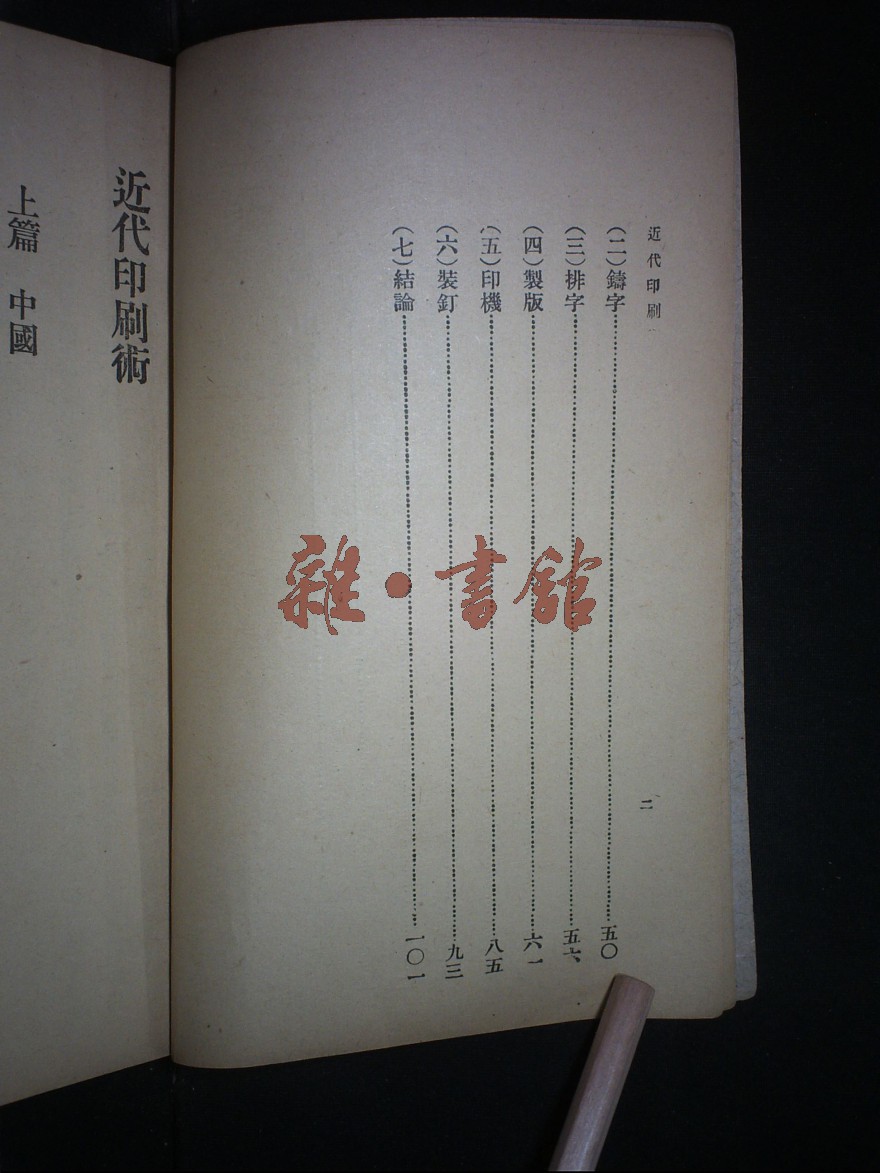 近代印刷
二
(二)鑄字……五〇
(三)排字……五六
(四)製版……六一
(五)印機……八五
(六)裝釘……九三
(七)結論……一〇一
近代印刷術
上篇 中國
雜·書館